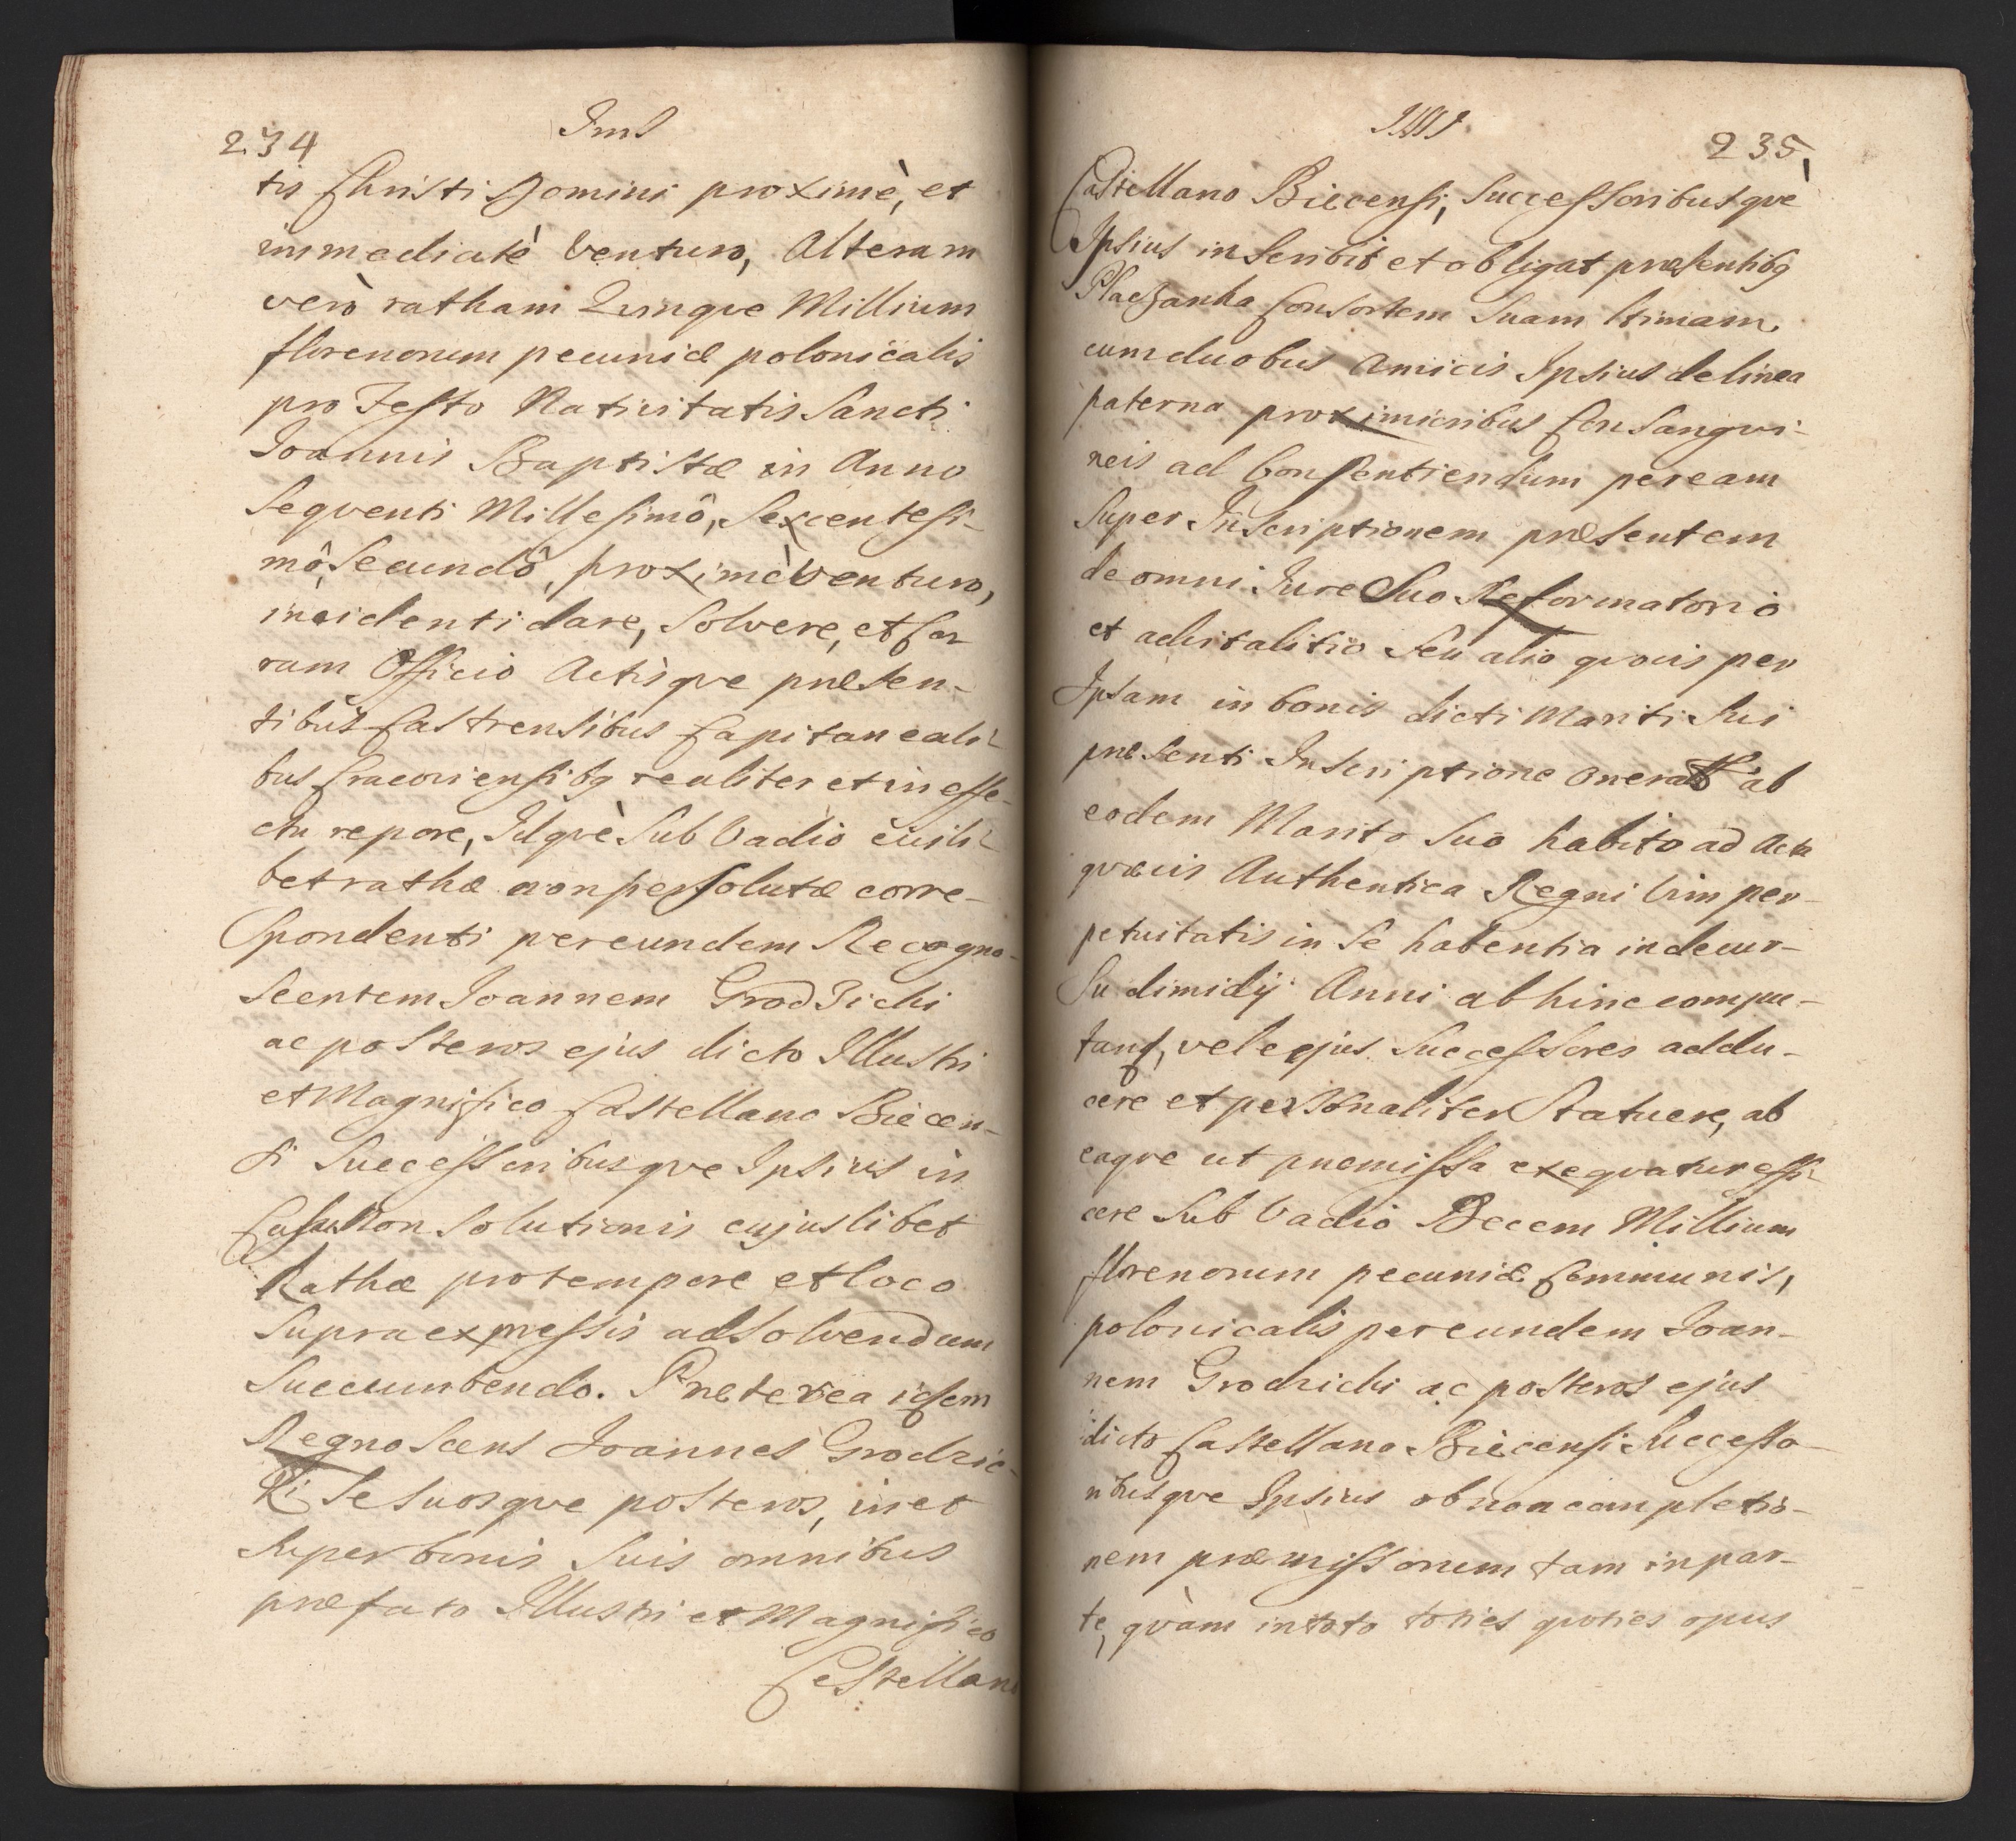 234
Jms
tis Christi Domini proximè, et
immediatè venturo, Alteram
verò ratham Qvinqve Millium
florenorum pecuniæ polonicalis
pro Festo Nativitatis Sancti
Joannis Baptistæ in Anno
Seqventi Millesimô, Sexcentesi-
mô, Secundô, proximè venturo,
incidenti dare, Solvere, et Cor
ram Officio Actisqve præsen-
tibus Castrensibus Capitaneali-
bus Cracoviensibq realiter et in effe-
ctu repore, Idqvè Sub Vadio cuili-
bet rathæ non persolutæ corre-
Spondenti per eundem Recogno-
Scentem Joannem Grodzicki
ac posteros ejus dicto Illustri
et Magnifico Castellano Biecen-
si Successoribusqve Ipsius in
Casu Non Solutionis cujuslibet
Rathæ pro tempore et loco
Supra expressis ad Solvendum
Succumbendo. Præterea idem
Regnoscens Joannes Grodzic-
ki Se Suosqve posteros, in et
Super bonis Suis omnibus
præfato Illustri et Magnifico
Castellano
235
Castellano Biecensi, Successoribusqvè
Ipsius inscribit et obligat præsentibq
Placzanka Consortem Suam ltimam
cum duobus Amicis Ipsius de linea
paterna proximioribus Consangvi-
neis ad Consentiendum per eam
Super Inscriptionem præsentem
de omni Jure Suo Reformatorio
et advitalitio Seu alio qvovis per
Ipsam in bonis dicti Mariti Sui
præsenti Inscriptione onerat ab
eodem Marito Suo habito ad Acta
qvævis Authentica Regni Vim per-
petuitatis in Se habentia in decur-
Su dimidij Anni abhinc compu-
tand, vel ejus Successores addu-
cere et personaliter Statuere, ab
eaqve ut præmissa exeqvatur effi-
cere Sub Vadio Decem Millium
florenorum pecuniæ Communis,
polonicalis per eundem Joan-
nem Grodzicki ac posteros ejus
dicto Castellano Biecensi Successo-
ribusqve Ipsius ob non completio-
nem præmissorum tam in par-
te, qvàm in toto toties qvoties opus